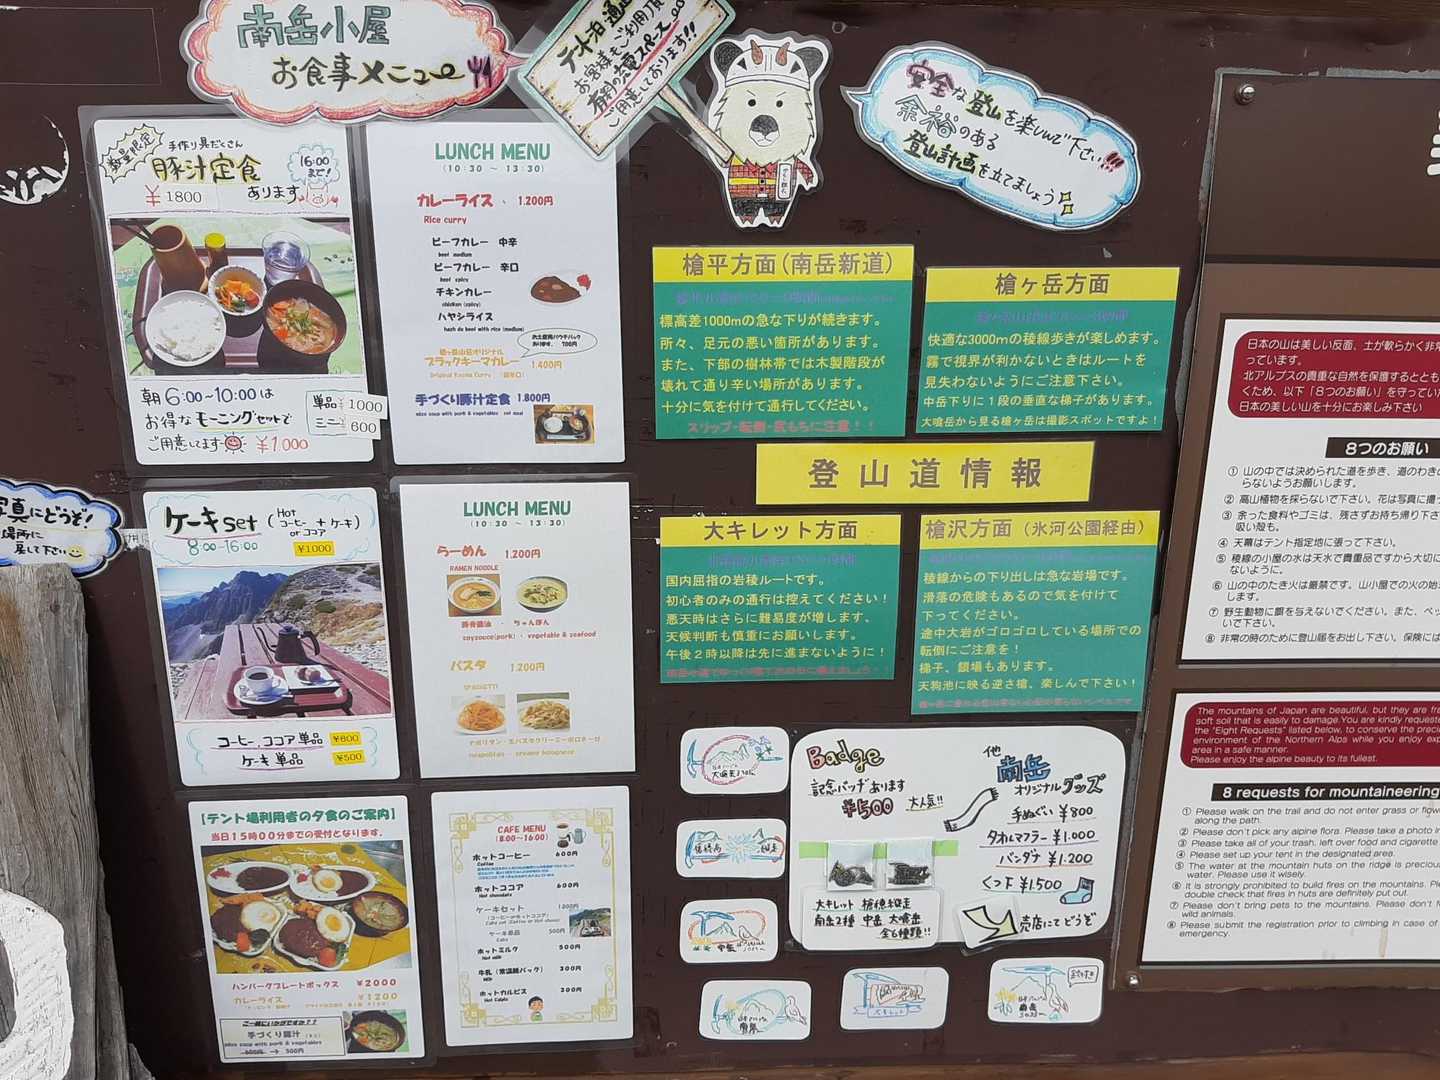 南岳小屋
お食事メニュー
テント泊
お客様もご利用頂
有料の充電スペース
ご用意しております!!
安全な登山を楽しんで下さい!!!
余裕のある
登山計画を立てましょう
数量限定
手作り具だくさん
豚汁定食
16:00
まで!
¥1800
あります
朝6:00~10:00は
お得なモーニングセットで
ご用意してます
¥1,000
単品 ¥1000
ミニ ¥600
LUNCH MENU
(10:30 ~ 13:30)
カレーライス 1,200円
Rice curry
ビーフカレー 中辛
beef medium
ビーフカレー 辛口
beef spicy
チキンカレー
chicken (spicy)
ハヤシライス
hash de beef with rice (medium)
槍ヶ岳山荘オリジナル
ブラックキーマカレー 1,400円
Original Keema Curry
700円
手づくり豚汁定食 1,800円
miso soup with pork & vegetables set meal
槍平方面(南岳新道)
標高差1000mの急な下りが続きます。
所々、足元の悪い箇所があります。
また、下部の樹林帯では木製階段が
壊れて通り辛い場所があります。
十分に気を付けて通行してください。
スリップ・転倒・尻もちに注意!!
槍ヶ岳方面
快適な3000mの稜線歩きが楽しめます。
霧で視界が利かないときはルートを
見失わないようにご注意下さい。
中岳下りに1段の垂直な梯子があります。
大喰岳から見る槍ヶ岳は撮影スポットですよ!
登山道情報
大キレット方面
国内屈指の岩稜ルートです。
初心者のみの通行は控えてください!
悪天時はさらに難易度が増します。
天候判断も慎重にお願いします。
午後2時以降は先に進まないように!
槍沢方面(氷河公園経由)
稜線からの下り出しは急な岩場です。
滑落の危険もあるので気を付けて
下ってください。
途中大岩がゴロゴロしている場所での
転倒にご注意を!
梯子、鎖場もあります。
天狗池に映る逆さ槍、楽しんで下さい!
写真にどうぞ!
場所に
戻して下さい
ケーキset (Hot コーヒー or ココア + ケーキ)
8:00-16:00 ¥1000
コーヒー、ココア単品 ¥600
ケーキ単品 ¥500
LUNCH MENU
(10:30 ~ 13:30)
らーめん 1,200円
RAMEN NOODLE
豚骨醤油 ・ ちゃんぽん
soysouce(pork) ・ vegetable & seafood
パスタ 1,200円
SPAGHETTI
ナポリタン・生パスタクリーミーボロネーゼ
neapolitan creamy bolognese
【テント場利用者の夕食のご案内】
当日15時00分までの受付となります。
ハンバーグプレートボックス ¥2000
カレーライス ¥1200
ご一緒にいかがですか??
手づくり豚汁
miso soup with pork & vegetables
600円 → 500円
CAFE MENU
(8:00~16:00)
ホットコーヒー 600円
Coffee
ホットココア 600円
Hot chocolate
ケーキセット 1200円
(コーヒーorホットココア)
Cake set (Coffee or Hot choco)
ケーキ単品 500円
Cake
ホットミルク 500円
Hot milk
牛乳(常温紙パック) 300円
Milk
ホットカルピス 300円
Hot Calpis
Badge
記念バッヂあります
¥500 大人気!!
大キレット 槍穂縦走
南岳2種 中岳 大喰岳
全6種類!!
他
南岳
オリジナルグッズ
手ぬぐい ¥800
タオルマフラー ¥1.000
バンダナ ¥1.200
くつ下 ¥1.500
売店にてどうぞ
日本の山は美しい反面、土が軟らかく非常
っています。
北アルプスの貴重な自然を保護するととも
くため、以下「8つのお願い」を守っていた
日本の美しい山を十分にお楽しみ下さい
8つのお願い
① 山の中では決められた道を歩き、道のわき
らないようお願いします。
② 高山植物を採らないで下さい。花は写真に撮
③ 余った食料やゴミは、残さずお持ち帰り下さ
吸い殻も。
④ 天幕はテント指定地に張って下さい。
⑤ 稜線の小屋の水は天水で貴重品ですから大切に
ないように。
⑥ 山の中のたき火は厳禁です。山小屋での火の始
します。
⑦ 野生動物に餌を与えないでください。また、ペッ
いで下さい。
⑧ 非常の時のために登山届をお出し下さい。保険には
The mountains of Japan are beautiful, but they are fra
soft soil that is easily to damage.You are kindly requeste
the "Eight Requests" listed below, to conserve the preci
environment of the Northern Alps while you enjoy exp
area in a safe manner.
Please enjoy the alpine beauty to its fullest.
8 requests for mountaineering
① Please walk on the trail and do not enter grass or flow
along the path.
② Please don't pick any alpine flora. Please take a photo in
③ Please take all of your trash, left over food and cigarette
④ Please set up your tent in the designated area.
⑤ The water at the mountain huts on the ridge is precious
water. Please use it wisely.
⑥ It is strongly prohibited to build fires on the mountains. Ple
double check that fires in huts are definitely put out.
⑦ Please don't bring pets to the mountains. Please don't f
wild animals.
⑧ Please submit the registration prior to climbing in case of
emergency.